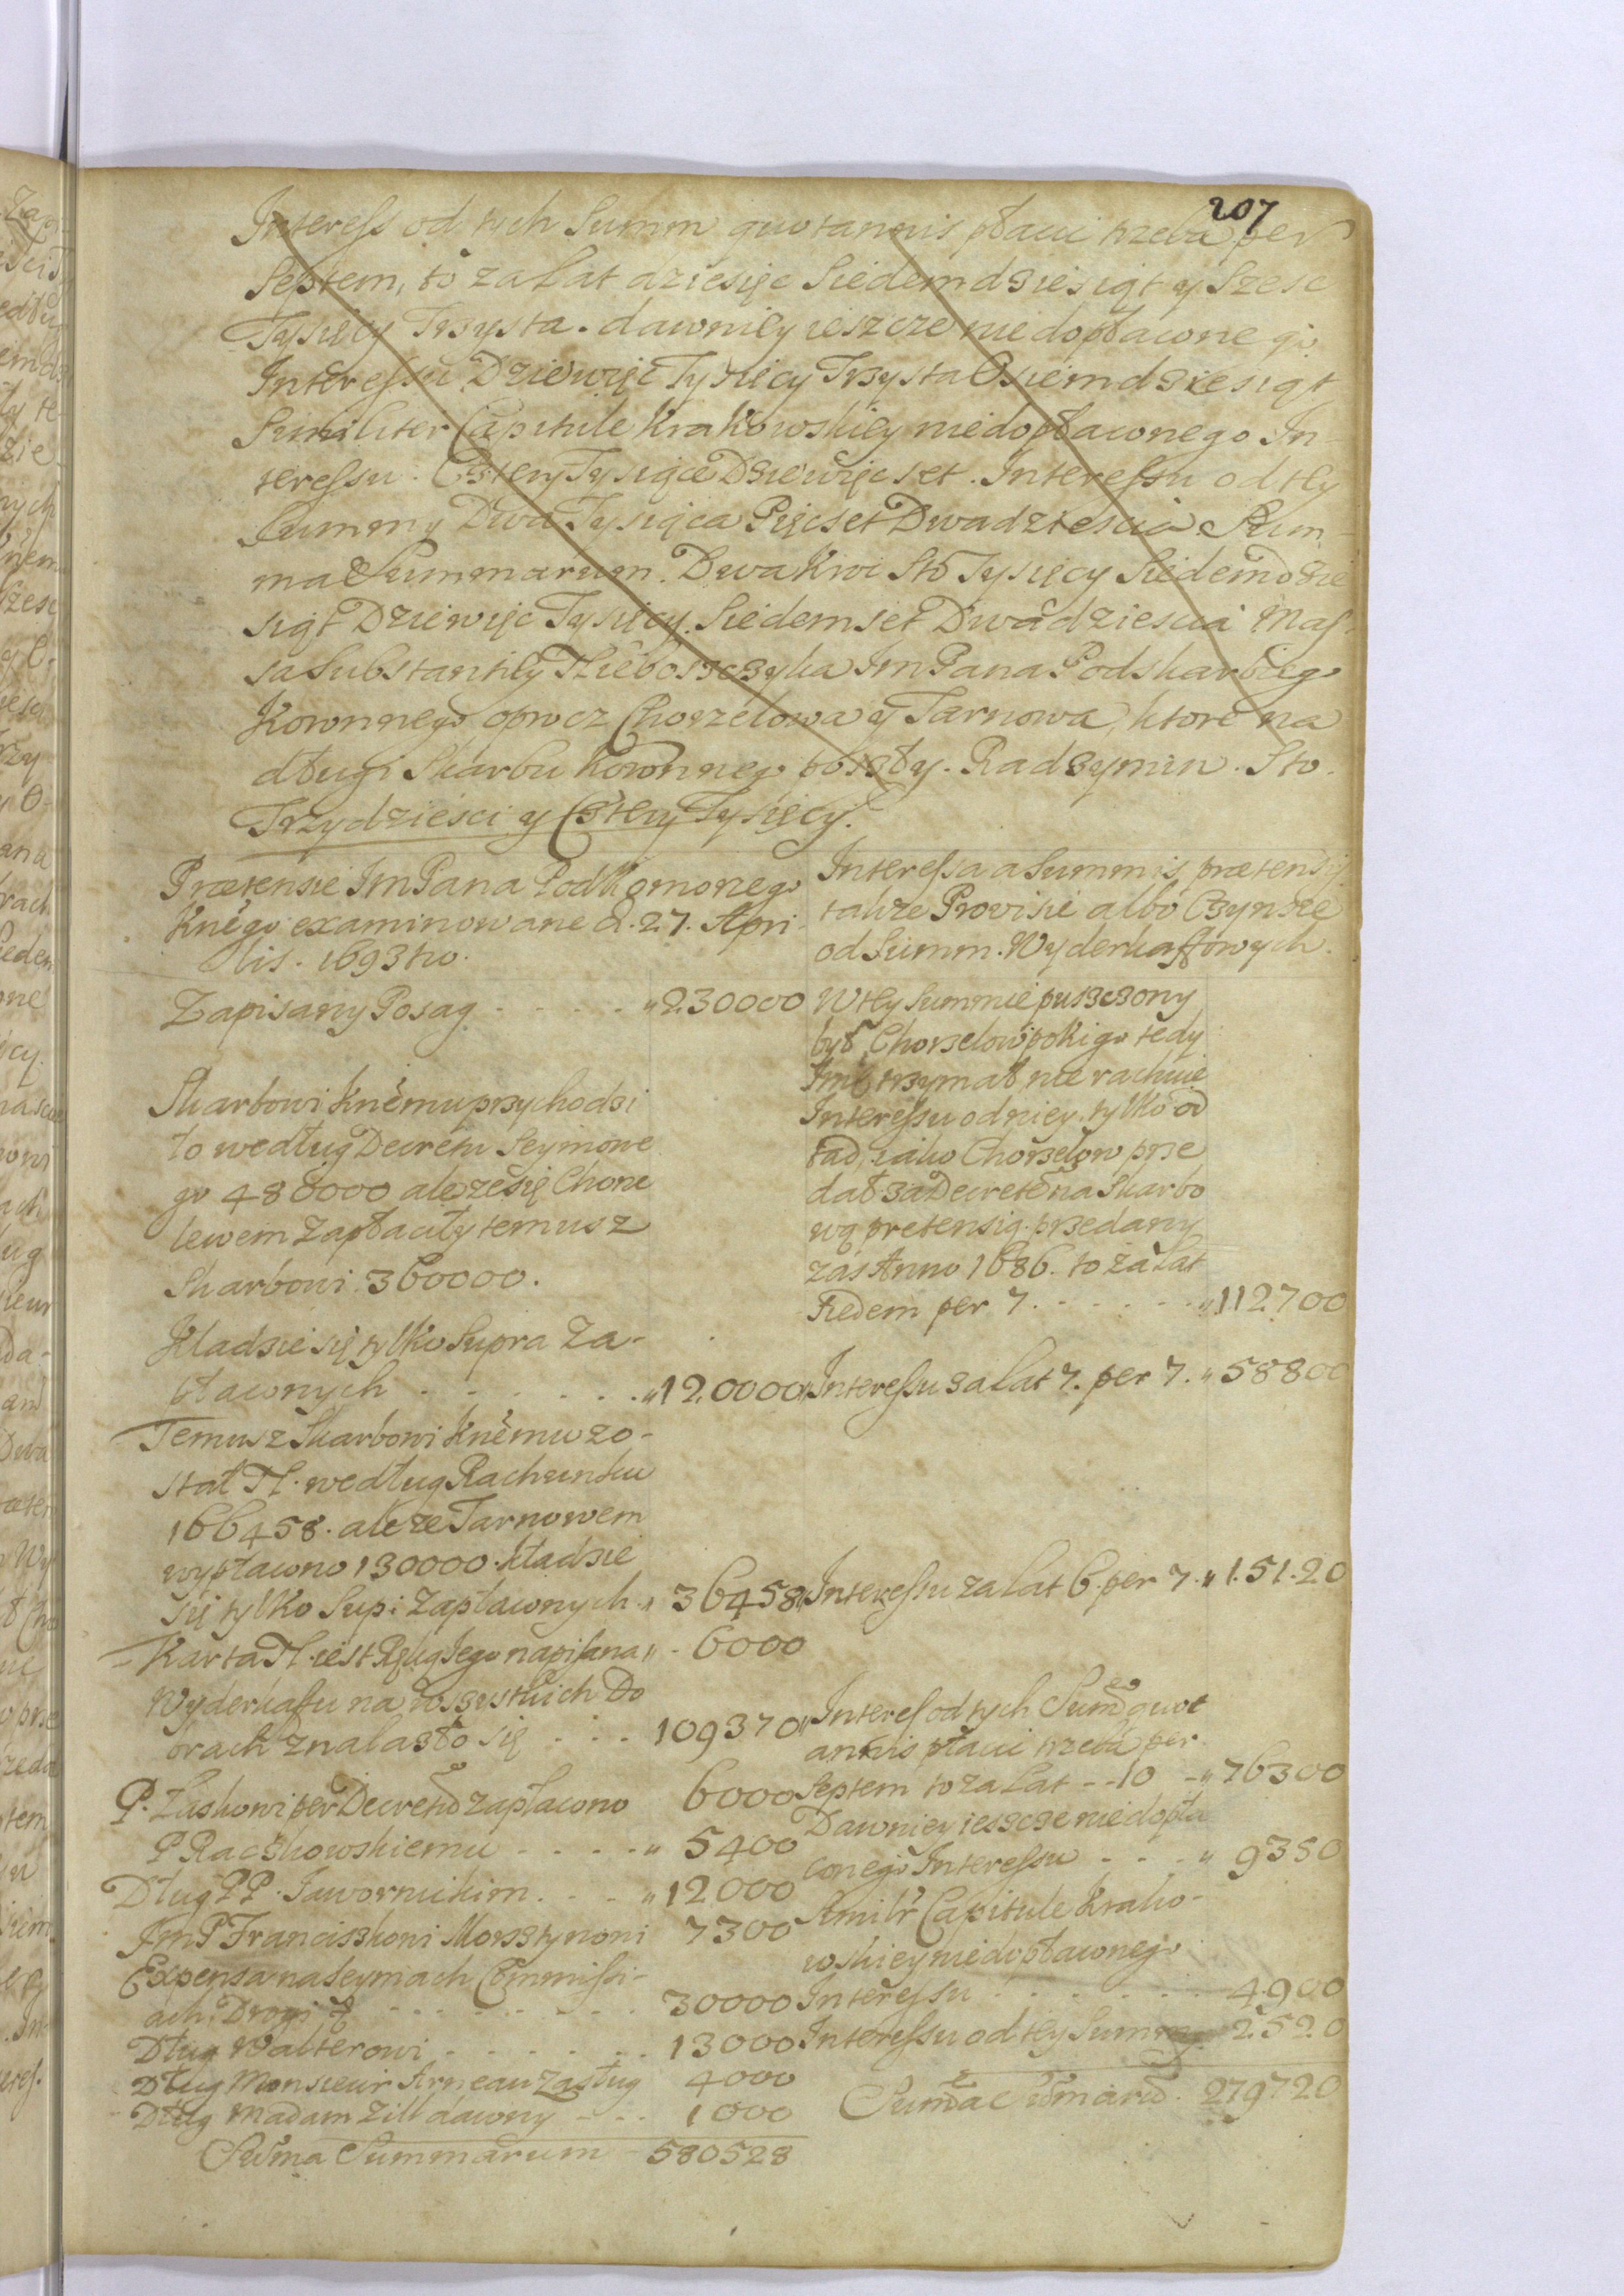 207
Interess od tych Summ quotannis płacić trzeba per
Septem, to za Lat dziesięc Siedemdziesiąt y Szesc
Tysięcy Trzysta. dawniey ieszcze niedopłaconego
Interessu Dziewięc Tysięcy Trzysta Osiemdziesiąt
Similiter Capitule Krakowskiey niedopłaconego In-
teressu. Cztery Tysiące Dziewięcset. Interessu od tey
Summy Dwa Tysiąca Pięcset Dwadziescia. Sum-
ma Summarum. Dwakroc Sto Tysięcy Siedemdzie
siąt Dziewięc Tysięcy. Siedemset Dwadziescia Mas-
sa Substantiey Nieboszczyka Im Pana Podskarbiego
Koronnego oprocz Chorzelowa y Tarnowa, ktore na
długi Skarbu Koronnego poszły. Radzymin. Sto.
Trzydziesci y Cztery Tysięcy.
Prætensie Im Pana Podkomorzego
Knego examinowane d. 27. Apri-
lis. 1693tio.
Interessa a Summis prætensij
takze Provisie albo Czynsze
od Summ. Wyderkaffowych.
Zapisany Posag - - - - " 230000
W tey Summie puszczony
był Chorzelow poki go tedy
Imć trzymał nie rachuie
Interessu od niey, tylko od
tąd, iako Chorzelow prze
dał za Decretē na Skarbo
wą pretensią. przedany
zaś Anno 1686. to za Lat
Siedem per 7. - - - - - " 112700
Skarbowi Knemu przychodzi
to według Decretu Seymowe
go 480000 ale ze się Chorze
lewem Zapłaciły temusz
Skarbowi 360000.
Kladzie się tylko Supra Za-
płaconych - - - - - - " 120000
Interessu za Lat 7. per 7. " 58800
Temusz Skarbowi Knemu zo-
stał N. według Rachunku
166458. ale ze Tarnowem
wypłacono 130000. kładzie
się tylko Supi Zapłaconych " 36458
Interessu za Lat 6. per 7. " 1.51.20
Karta N. iest Ręką Jego napisana " - 6000
Wyderkafu na wszystkich Do
brach znalazło się - - - 109370
Interes od tych Sum̃ quot
annis płacić trzeba per
Septem to za Lat - - 10 - " 76300
P. Łaskowi per Decretū zapłacono 6000
P Raczkowskiemu - - - - " 5400
Dawniey ieszcze niedopła
conego Interessu - - - " 9380
Dług PP. Jawornickim. - - " 12000
Im P Franciszkowi Morsztynowi 7300
Similr Capitule Krako-
wskiey niedopłaconego
Interessu - - - - - - - 4900
Expensa na Seymach Commissi-
ach Drogi & - - - - - - - 30000
Dług Walterowi - - - - - - 13000
Interessu od tey Summy 2520
Dług Monsieur Arneau Zasług 4000
Dług Madam Lilł dawny - - - 1000
Suma Sumarū. 279720
Suma Summarum - 580528